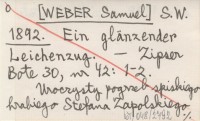 [WEBER Samuel] S.W.
1892. Ein glänzender
Leichenzug. — Zipser
Bote 30, nr 42: 1-2.
Uroczysty pogrzeb spiskiego
hrabiego Stefana Zapolskiego